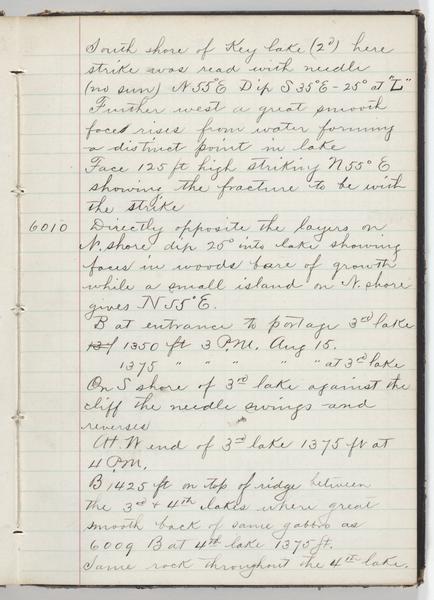 South shore of Key lake (2d) here
strike was read with needle
(no sun) N55°E Dip S35°E - 25° at "L"
Further west a great smooth
face rises from water forming
a distinct point in lake
Face 125 ft high striking N55°E
showing the fracture to be with
the strike
6010 Directly opposite the layers on
N. shore dip 25° into lake showing
faces in woods bare of growth
while a small island on N. shore
gives N55°E.
B at entrance to portage 3rd lake
1350 ft 3 P.M. Aug 15.
1375 " " " " " at 3rd lake
On S shore of 3rd lake against the
cliff the needle swings and
reverses
At W end of 3rd lake 1375 ft at
4 P.M.
B 1425 ft on top of ridge between
the 3rd + 4th lakes where great
smooth back of same gabbro as
6009 B at 4th lake 1375 ft.
Same rock throughout the 4th lake.